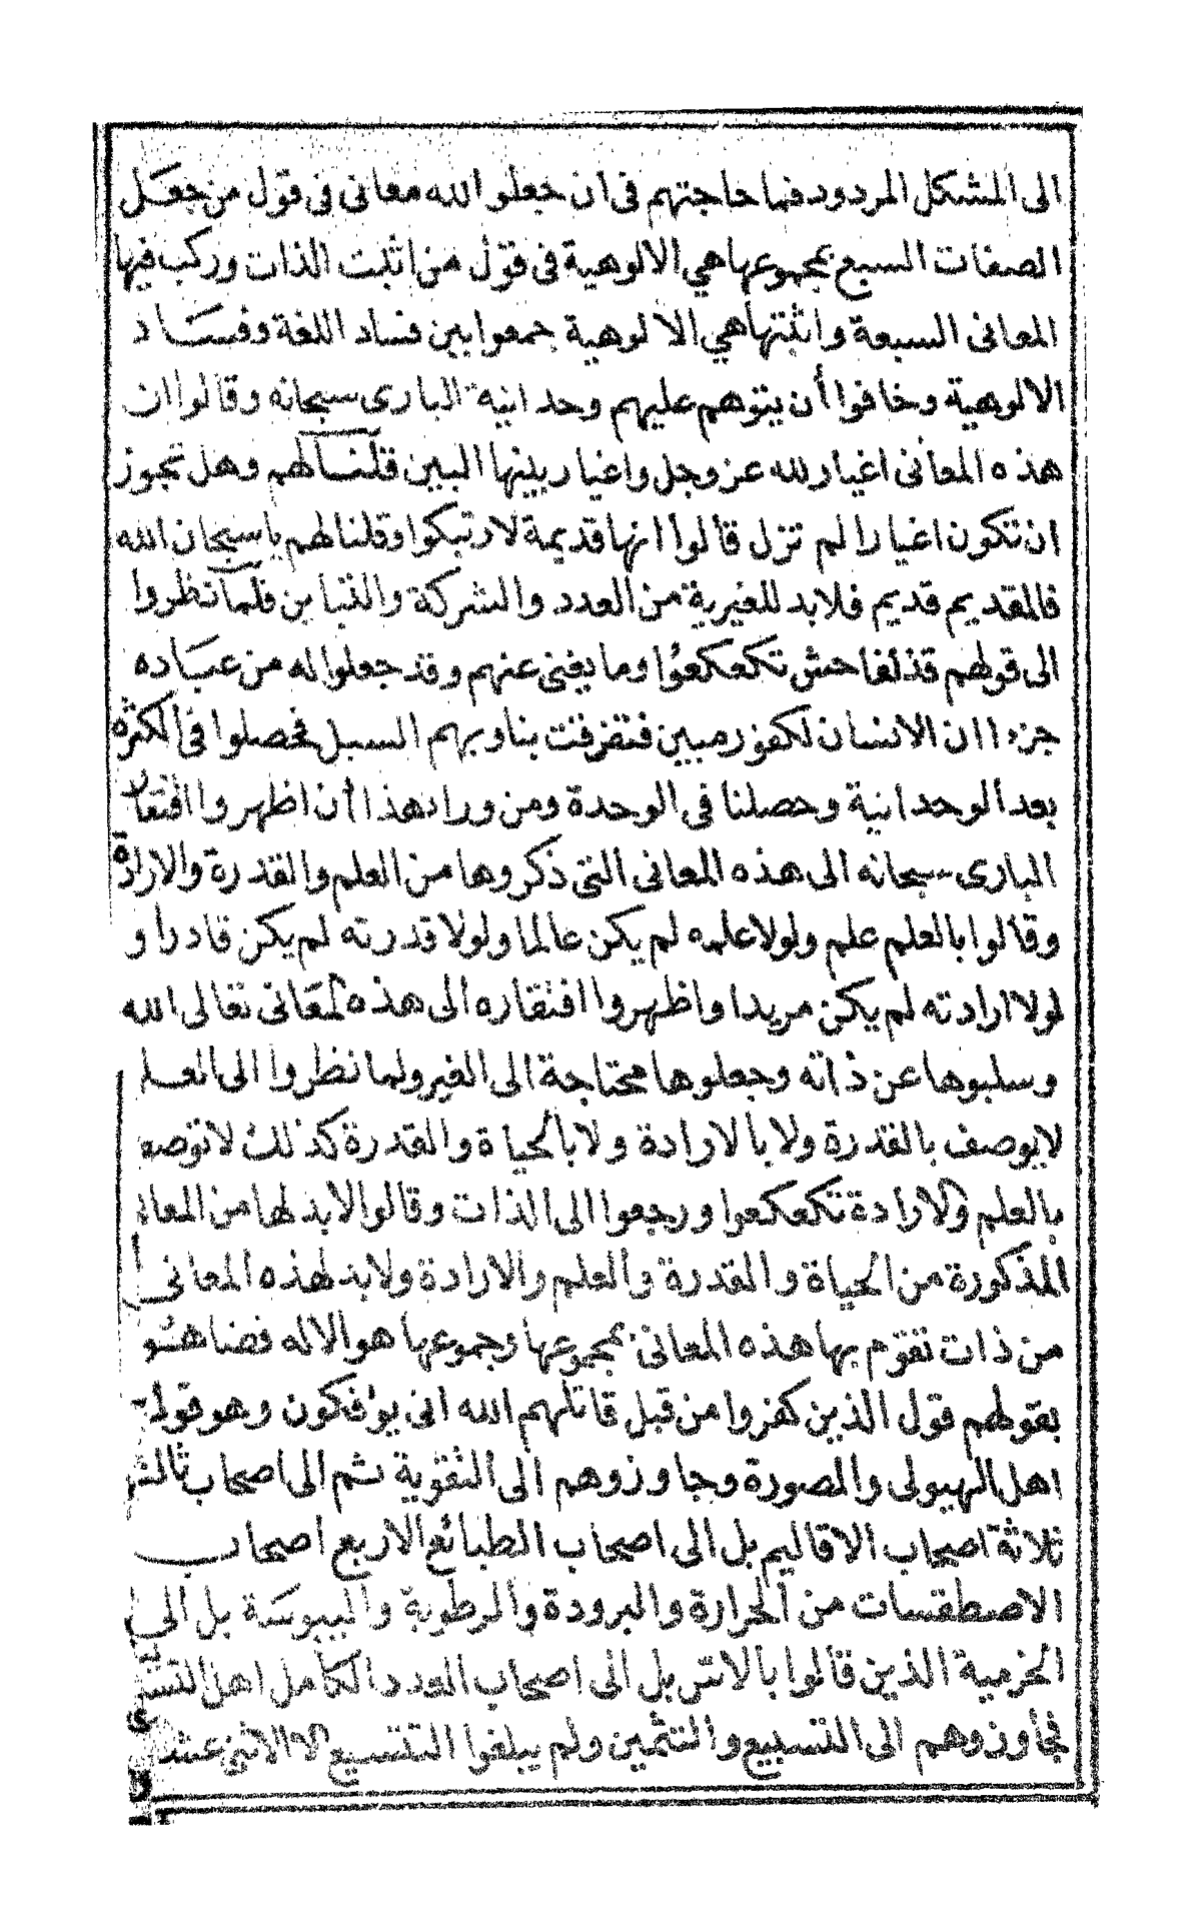 الى المشكل المردود فما حاجتهم فى ان جعلو الله معانى فى قول من جعل
الصفات السبع بمجموعها هي الالوهية فى قول من اثبت الذات وركب فيها
المعانى السبعة واثبتها هي الالوهية جمعوا بين فساد اللغة وفساد
الالوهية وخافوا أن يتوهم عليهم وحدانية البارى سبحانه وقالوا ان
هذه المعانى اغيار لله عز وجل واغيار بينها البين قلنا لهم وهل تجوز
ان تكون اغيارا لم تزل قالوا انها قديمة لارتبكوا وقلنا لهم يا سبحان الله
فالمقديم قديم فلابد للغيرية من العدد والشركة والتباين فلما نظروا
الى قولهم قذلفاحش تكعكعوا وما يغنى عنهم وقد جعلوا له من عباده
جزءا ان الانسان لكفور مبين فتفرقت بنا وبهم السبل فحصلوا فى الكثرة
بعد الوحدانية وحصلنا فى الوحدة ومن وراء هذا أن اظهروا افتقار
البارى سبحانه الى هذه المعانى التى ذكروها من العلم والقدرة والارادة
وقالوا بالعلم علم ولولا علمه لم يكن عالما ولولا قدرته لم يكن قادرا و
لولا ارادته لم يكن مريدا واظهروا افتقاره الى هذه المعانى تعالى الله
وسلبوها عن ذاته وجعلوها محتاجة الى الغير ولما نظروا الى العلم
لايوصف بالقدرة ولا بالارادة ولا بالحياة والقدرة كذلك لا توصف
بالعلم والارادة تكعكعوا ورجعوا الى الذات وقالوا لابد لها من المعانى
المذكورة من الحياة والقدرة والعلم والارادة ولابد لهذه المعانى
من ذات تقوم بها هذه المعانى بمجموعها وجموعها هو الاله فضاهئو
بقولهم قول الذين كفروا من قبل قاتلهم الله انى يؤفكون وهو قول
اهل الهيولى والصورة وجاوزوهم الى الثنوية ثم الى اصحاب ثالث
ثلاثة اصحاب الاقاليم بل الى اصحاب الطبائع الاربع اصحاب
الاصطقسات من الحرارة والبرودة والرطوبة واليبوسة بل الى
الخرمية الذين قالوا بالاتس بل الى اصحاب العدد الكامل اهل
فجاوزوهم الى التسبيع والتثمين ولم يبلغوا التتسيع الا الاثنى عشر